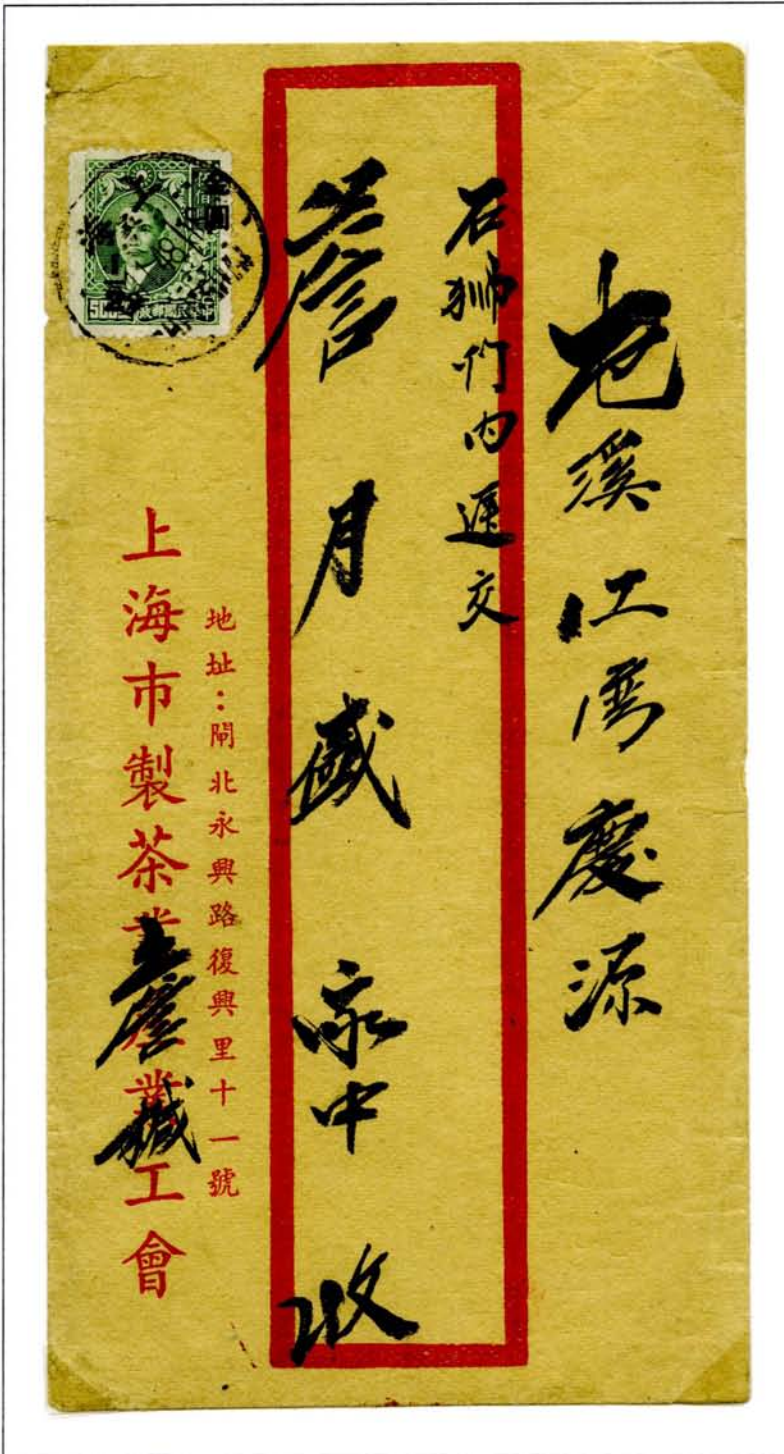 屯溪江湾慶源
石狮竹内遞交
詹月盛家中收
地址：閘北永興路復興里十一號
上海市製茶業產業工會
詹緘
金圓
500